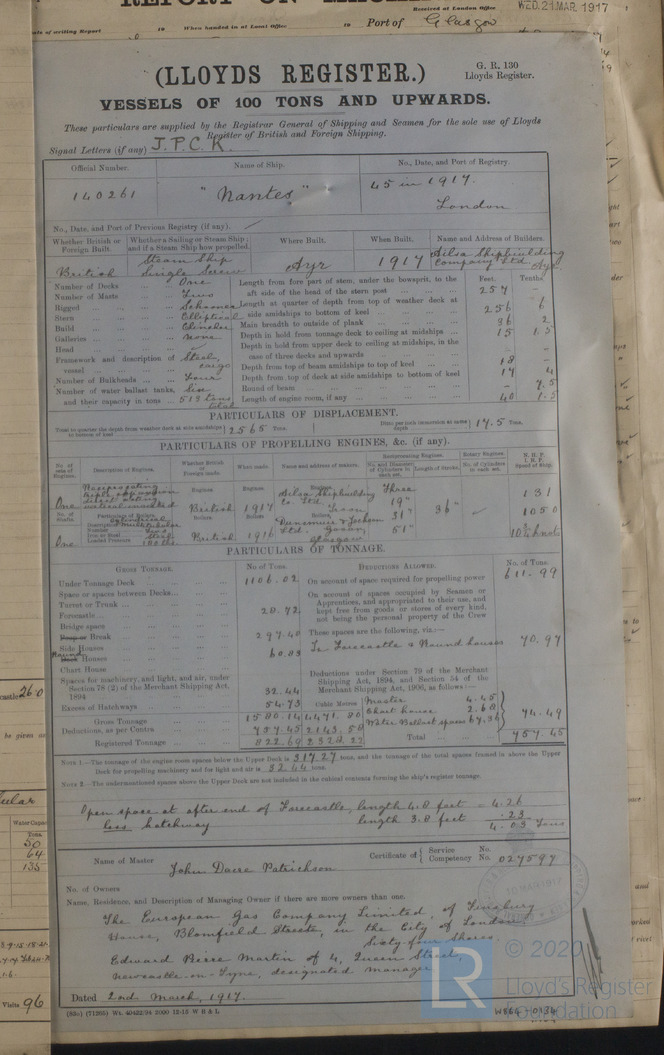 REPORT ON MACHIN
Received at London Office
WED. 21 MAR. 1917
Date of writing Report
19
When handed in at Local Office
19
Port of Glasgow
(LLOYDS REGISTER.)
G. R. 130
Lloyds Register.
VESSELS OF 100 TONS AND UPWARDS.
These particulars are supplied by the Registrar General of Shipping and Seamen for the sole use of Lloyds
Register of British and Foreign Shipping.
Signal Letters (if any) J.P.C.K.
Official Number. Name of Ship. No., Date, and Port of Registry.
140261 "Nantes" 45 in 1917.
London
No., Date, and Port of Previous Registry (if any).
Whether British or Foreign Built. Whether a Sailing or Steam Ship; and if a Steam Ship how propelled. Where Built. When Built. Name and Address of Builders.
British Steam Ship Single Screw Ayr 1917 Ailsa Shipbuilding Company Ltd Ayr
Feet. Tenths
Number of Decks One
Number of Masts Two
Rigged Schooner
Stern Elliptical
Build Clincher
Galleries None
Head
Framework and description of vessel Steel, cargo
Number of Bulkheads Four
Number of water ballast tanks, and their capacity in tons Six 519 tons total
Length from fore part of stem, under the bowsprit, to the aft side of the head of the stern post 257
Length at quarter of depth from top of weather deck at side amidships to bottom of keel 256 6
Main breadth to outside of plank 36 2
Depth in hold from tonnage deck to ceiling at midships 15 1.5
Depth in hold from upper deck to ceiling at midships, in the case of three decks and upwards - -
Depth from top of beam amidships to top of keel 18 -
Depth from top of deck at side amidships to bottom of keel 17 4
Round of beam - 7.5
Length of engine room, if any 40 1.5
PARTICULARS OF DISPLACEMENT.
Total to quarter the depth from weather deck at side amidships to bottom of keel 2565 Tons.
Ditto per inch immersion at same depth 17.5 Tons.
PARTICULARS OF PROPELLING ENGINES, &c. (if any).
No. of sets of Engines. Description of Engines. Whether British or Foreign made. When made. Name and address of makers. Reciprocating Engines. No. and Diameter of Cylinders in each set. Length of Stroke. Rotary Engines. No. of Cylinders in each set. N.H.P. I.H.P. Speed of Ship.
One Reciprocating triple expansion direct acting vertical inverted
Engines British 1917
Ailsa Shipbuilding Co Ltd Troon
Three 19" 31" 51" 36" 131 1050 10½ knots
No. of Shafts. Particulars of Boilers.
One Description Cylindrical Multitubular
Number Two
Iron or Steel Steel
Loaded Pressure 180 lbs
Boilers British 1916 Dunsmuir & Jackson Ltd. Govan, Glasgow
PARTICULARS OF TONNAGE.
GROSS TONNAGE. No. of Tons.
Under Tonnage Deck 1106.02
Space or spaces between Decks
Turret or Trunk
Forecastle 28.72
Bridge space
Poop or Break 297.40
Side Houses
Round Deck Houses 60.83
Chart House
Spaces for machinery, and light, and air, under Section 78 (2) of the Merchant Shipping Act, 1894 32.44
Excess of Hatchways 54.73
Cubic Metres
Gross Tonnage 1580.14 4471.80
Deductions, as per Contra 757.45 2143.58
Registered Tonnage 822.69 2328.22
DEDUCTIONS ALLOWED. No. of Tons.
On account of space required for propelling power 611.99
On account of spaces occupied by Seamen or Apprentices, and appropriated to their use, and kept free from goods or stores of every kind, not being the personal property of the Crew
These spaces are the following, viz.:-
In Forecastle & Round houses 70.97
Deductions under Section 79 of the Merchant Shipping Act, 1894, and Section 54 of the Merchant Shipping Act, 1906, as follows:-
Master 4.45
Chart house 2.68
Water Ballast spaces 67.36
74.49
Total 757.45
NOTE 1.-The tonnage of the engine room spaces below the Upper Deck is 317.27 tons, and the tonnage of the total spaces framed in above the Upper
Deck for propelling machinery and for light and air is 32.44 tons.
NOTE 2.-The undermentioned spaces above the Upper Deck are not included in the cubical contents forming the ship's register tonnage.
Open space at after end of Forecastle, length 4.8 feet = 4.26
less hatchway length 3.8 feet .23
4.03 Tons
Name of Master John Dacre Patrickson
Certificate of { Service No.
Competency No. 027597
No. of Owners
Name, Residence, and Description of Managing Owner if there are more owners than one.
The European Gas Company Limited, of Finsbury
House, Blomfield Street, in the City of London,
Sixty-four Shares.
Edward Pierre Martin of 4, Queen Street,
Newcastle-on-Tyne, designated manager
Dated 2nd March, 1917.
10 MAR 1917
© 2020
LR
Lloyd's Register
Foundation
W566-0134
Water Capac
Tons.
50
64
135
Visits 96